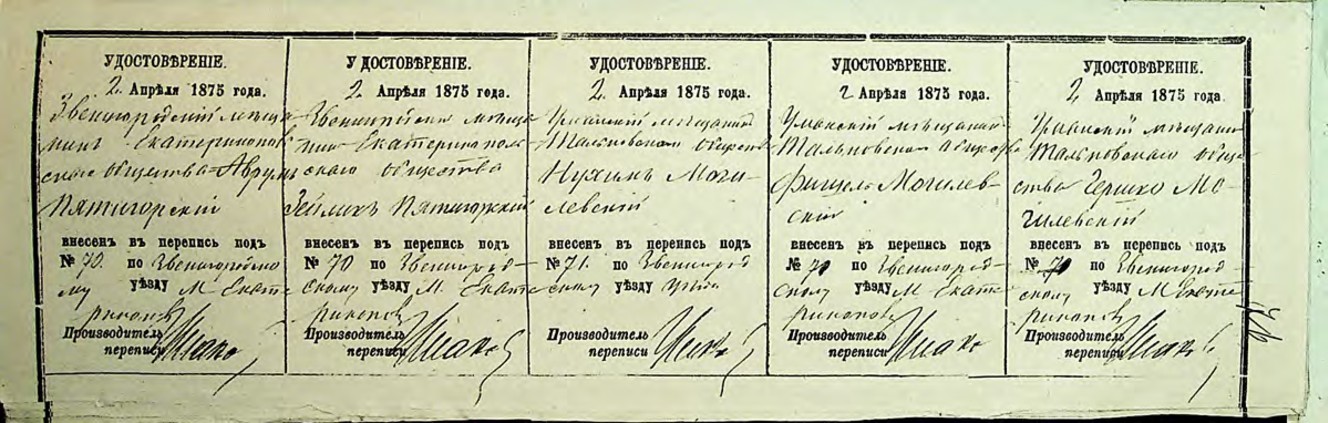 УДОСТОВѢРЕНІЕ.
2. Апрѣля 1875 года.
Звенигородскій мѣща
нинъ Екатеринопол
скаго общества Аврумъ
Пятигорскій
внесенъ въ перепись подъ
№ 70. по Звенигородско
му уѣзду М. Екате
ринопо
Производитель
переписи
УДОСТОВѢРЕНІЕ.
2. Апрѣля 1875 года.
Звенигородскій мѣща
нинъ Екатеринопол
скаго общества
Зейликъ Пятигорскій
внесенъ въ перепись подъ
№ 70 по Звенигород-
скому уѣзду М. Екате
ринопо
Производитель
переписи
УДОСТОВѢРЕНІЕ.
2. Апрѣля 1875 года.
Уманскій мѣщанинъ
Тальновскаго обществ
Нухимъ Моги-
левскій
внесенъ въ перепись подъ
№ 71. по Звенигород
скому уѣзду
Производитель
переписи
УДОСТОВѢРЕНІЕ.
2 Апрѣля 1875 года.
Уманскій мѣщанинъ
Тальновскаго общества
Фишель Могилев-
скій
внесенъ въ перепись подъ
№ по Звенигород-
скому уѣзду М Екате
ринопо
Производитель
переписи
УДОСТОВѢРЕНІЕ.
2. Апрѣля 1875 года.
Уманскій мѣщанинъ
Тальновскаго обще
ства Гершко Мо-
гилевскій
внесенъ въ перепись подъ
№ по Звенигород-
скому уѣзду М Екате
ринопо
Производитель
переписи